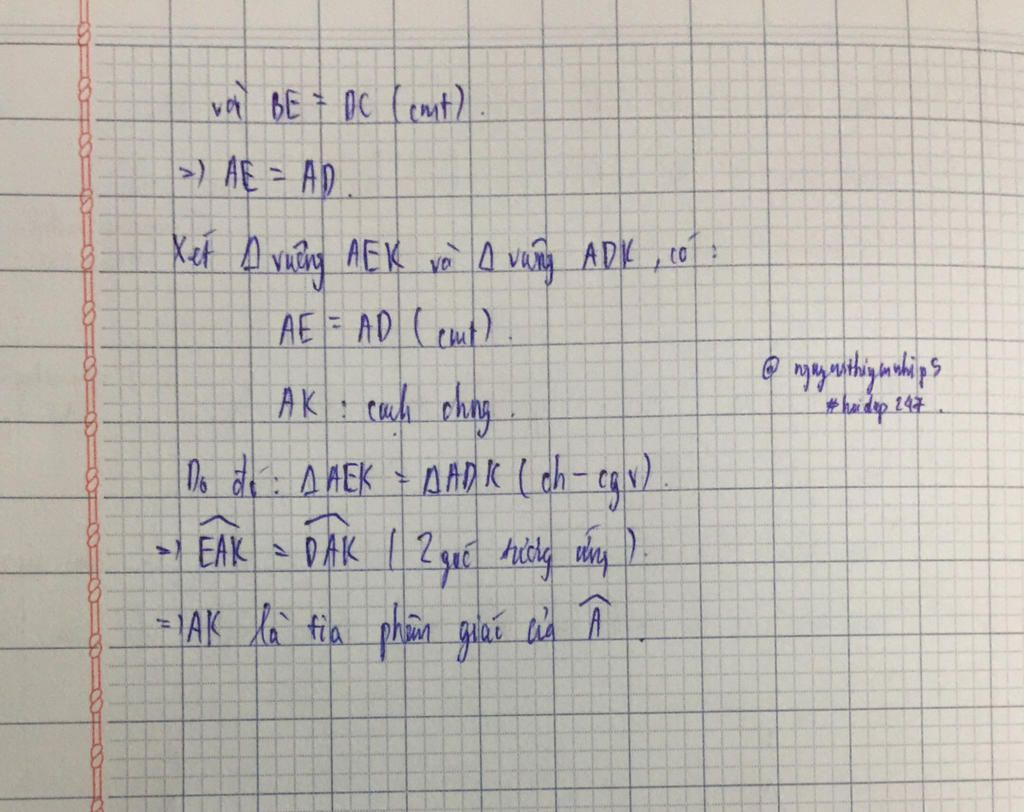 và BE = DC (cmt).
=) AE = AD.
Xét Δ vuông AEK và Δ vuông ADK, có:
AE = AD (cmt).
AK : cạnh chng.
Do đó: ΔAEK = ΔADK (ch - cgv).
=) \widehat{EAK} = \widehat{DAK} (2 góc tương ứng).
=) AK là tia phân giác của \widehat{A}.
#hoidap247.